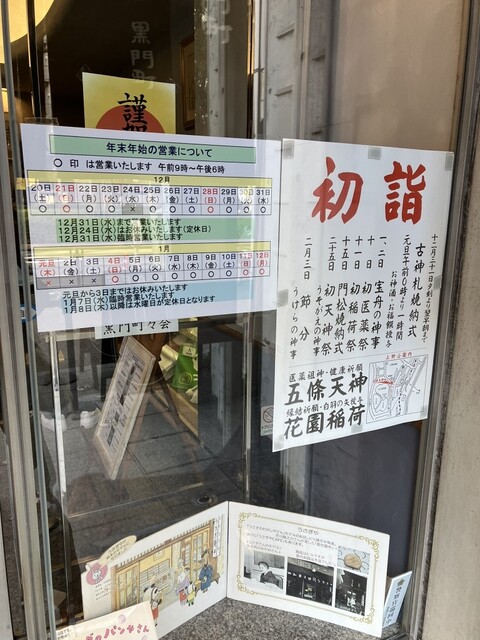 黒門町
謹
年末年始の営業について
〇 印 は営業いたします 午前9時〜午後6時
12月
20日 21日 22日 23日 24日 25日 26日 27日 28日 29日 30日 31日
(土) (日) (月) (火) (水) (木) (金) (土) (日) (月) (火) (水)
〇 〇 〇 〇 × 〇 〇 〇 〇 〇 〇 〇
12月31日(水)まで営業いたします
12月24日(水)はお休みいたします(定休日)
12月31日(水)臨時営業いたします
1月
元旦 2日 3日 4日 5日 6日 7日 8日 9日 10日 11日 12日
(木) (金) (土) (日) (月) (火) (水) (木) (金) (土) (日) (月)
× × × 〇 〇 〇 〇 〇 〇 〇 〇 〇
元旦から3日まではお休みいたします
1月7日(水)臨時営業いたします
1月8日(木)以降は水曜日が定休日となります
黒門町々会
初詣
十二月三十一日夕刻より翌早朝まで
古神札焼納式
元旦午前0時より一時間
お神酒・お福餅授与
一、二日 宝舟の神事
十日 初医薬祭
十一日 初稲荷祭
十五日 門松焼納式
二十五日 初天神祭
うそがえの神事
二月三日 節分
うけらの神事
医薬祖神・健康祈願
五條天神
縁結祈願・白羽の矢授与
花園稲荷
うさぎや
のパンやさん